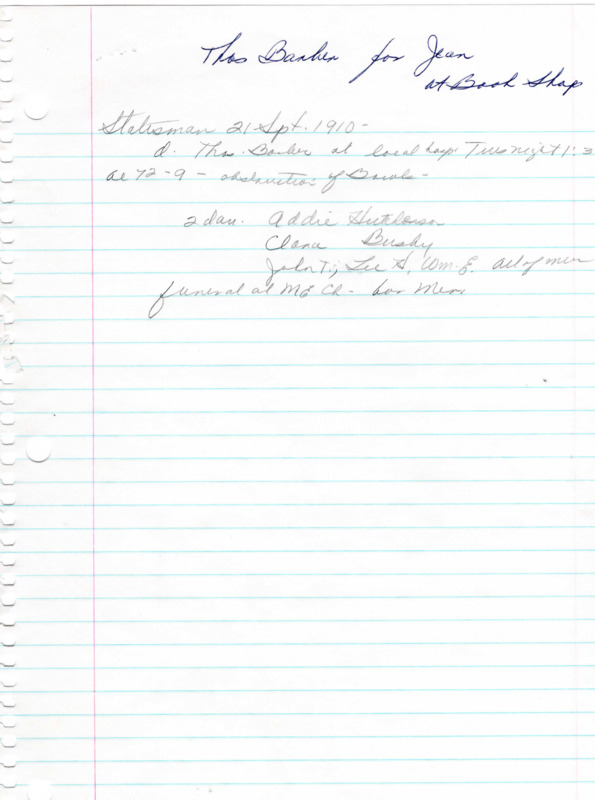 Thos Barker for Jean
at Book Shop
Statesman 21 Spt. 1910 -
d. Thos. Barker at local hosp. Tues night 1:3
ae 72 - 9 - obstruction of Bowels -
2 dau. Addie Hutchinson
Clara Busby
John T., Lee H, Wm. E. all of
funeral at ME Ch -